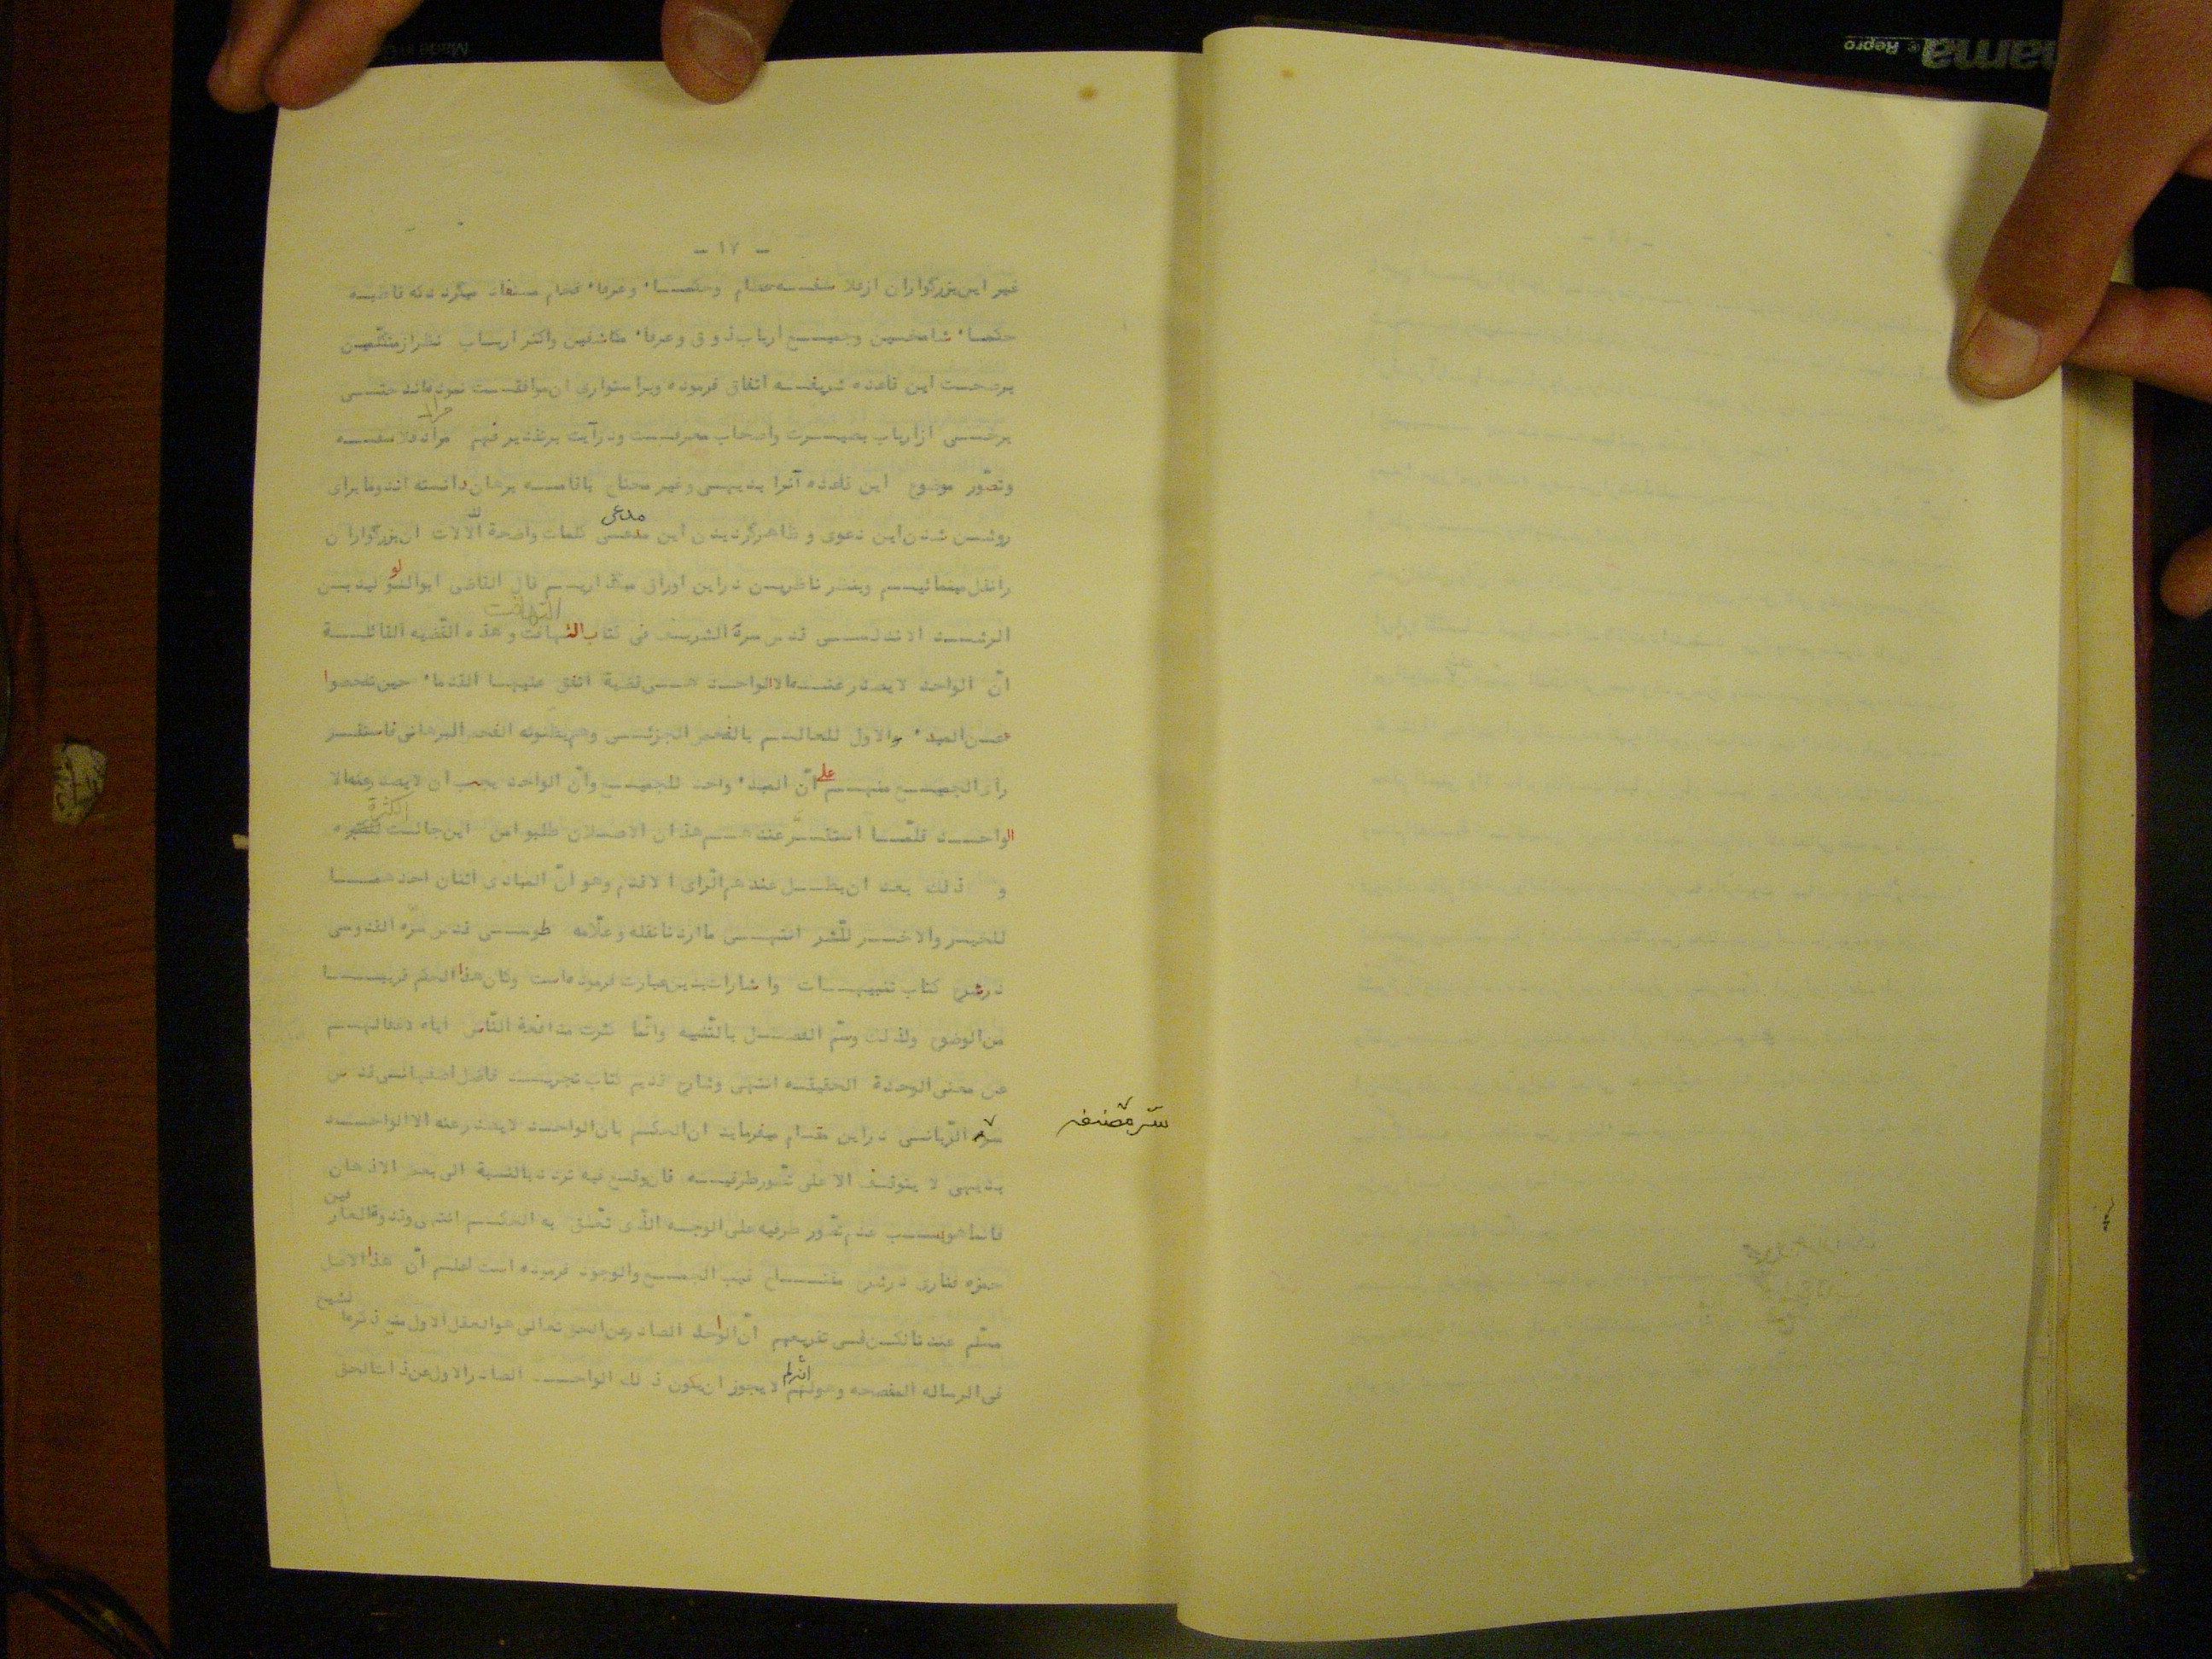 - ١٧ -
غیر این بزرگواران از فلاسفه عظام وحکماء وعرفاء فخام مستفاد میگردد که قاطبه
حکماء شامخین وجمیع ارباب ذوق وعرفاء مکاشفین واکثر ارباب نظر از متکلّمین
برصحت این قاعده شریفه اتفاق فرموده وبراستواری ان موافقت نموده‌اند حتی
برخی از ارباب بصیرت واصحاب معرفت ودرآیت برتقدیر فهم مراد فلاسفه
وتصوّر موضوع این قاعده آنرا بدیهی وغیر محتاج باقامه برهان دانسته اند وما برای
روشن شدن این دعوی و ظاهر گردیدن این مدعی کلمات واضحة الدّلالات ان بزرگواران
مدعی
را نقل مینمائیم وبنظر ناظرین در این اوراق میگذاریم قال القاضی ابوالولید بن
لو
الرشید الاندلسی قدس سرّه الشریف فی کتاب التهافت و هذه القضیه القائلة
التهافت
انّ الواحد لا یصدر عنه الا الواحد هی قضیة اتفق علیها القدماء حین تفحصوا
عن المبدء والاول للعالم بالفحص الجزئی وهم یظنونه الفحص البرهانی فاستقر
رأی الجمیع منهم علی انّ المبدء واحد للجمیع وانّ الواحد یجب ان لا یصدر عنه الا
الواحد فلمّا استقرّ عندهم هذان الاصلان طلبوا من این جائت الکثره
الکثرة
و ذلک بعد ان بطل عندهم الرّای الاقدم وهو انّ المبادی اثنان احدهما
للخیر والاخر للّشر انتهی ما اردنا نقله وعلّامه طوسی قدس سرّه القدوسی
درشرح کتاب تنبیهات واشارات بدین عبارت فرموده است وکان هذا الحکم قریبا
من الوضوح ولذلک وسّم الفصل بالتّنبیه وانّما کثرت مدافعة النّاس ایاه لاغفالهم
عن معنی الوحدة الحقیقیه انتهی وشارح قدیم کتاب تجرید فاضل اصفهانی قدس
سرّه الرّبانی دراین مقام میفرماید ان الحکم بان الواحد لا یصدر عنه الا الواحد
بدیهی لا یتوقف الا علی تصّور طرفیه فان وقع فیه تردد بالنسبة الی بعض الاذهان
فانما هو بسبب عدم تصّور طرفیه علی الوجه الذّی تعّلق به الحکم انتهی وقدوة العارفین
حمزه فناری درشرح مفتاح غیب الجمع والوجود فرموده است اعلم انّ هذا الاصل
مسّلم عندنا لکن فی تفریعهم انّ الواحد الصادر عن الحق تعالی هو العقل الاول منع ذکره الشیخ
فی الرساله المفصحه وهو انّه لم لا یجوز ان یکون ذلک الواحد الصادر الاول عن ذات الحق